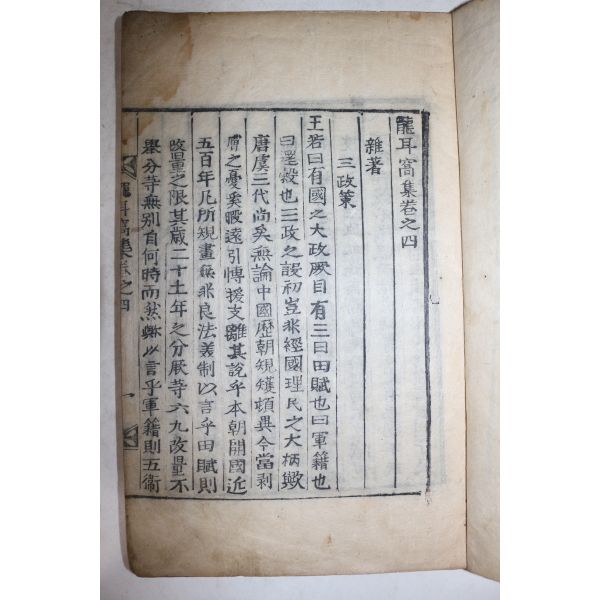 龍耳窩集卷之四
雜著
三政策
王若曰有國之大政厥目有三曰田賦也曰軍籍也
曰還穀也三政之設初豈非經國理民之大柄歟
唐虞三代尚矣無論中國歷朝規矱頓異今當剥
膚之憂奚暇遠引愽援支離其說乎本朝開國近
五百年凡所規畫無非良法美制以言乎田賦則
改量之限其歲二十土年之分厥等六九改量不
擧分等無別自何時而然歟以言乎軍籍則五衛
龍耳窩集卷之四
一